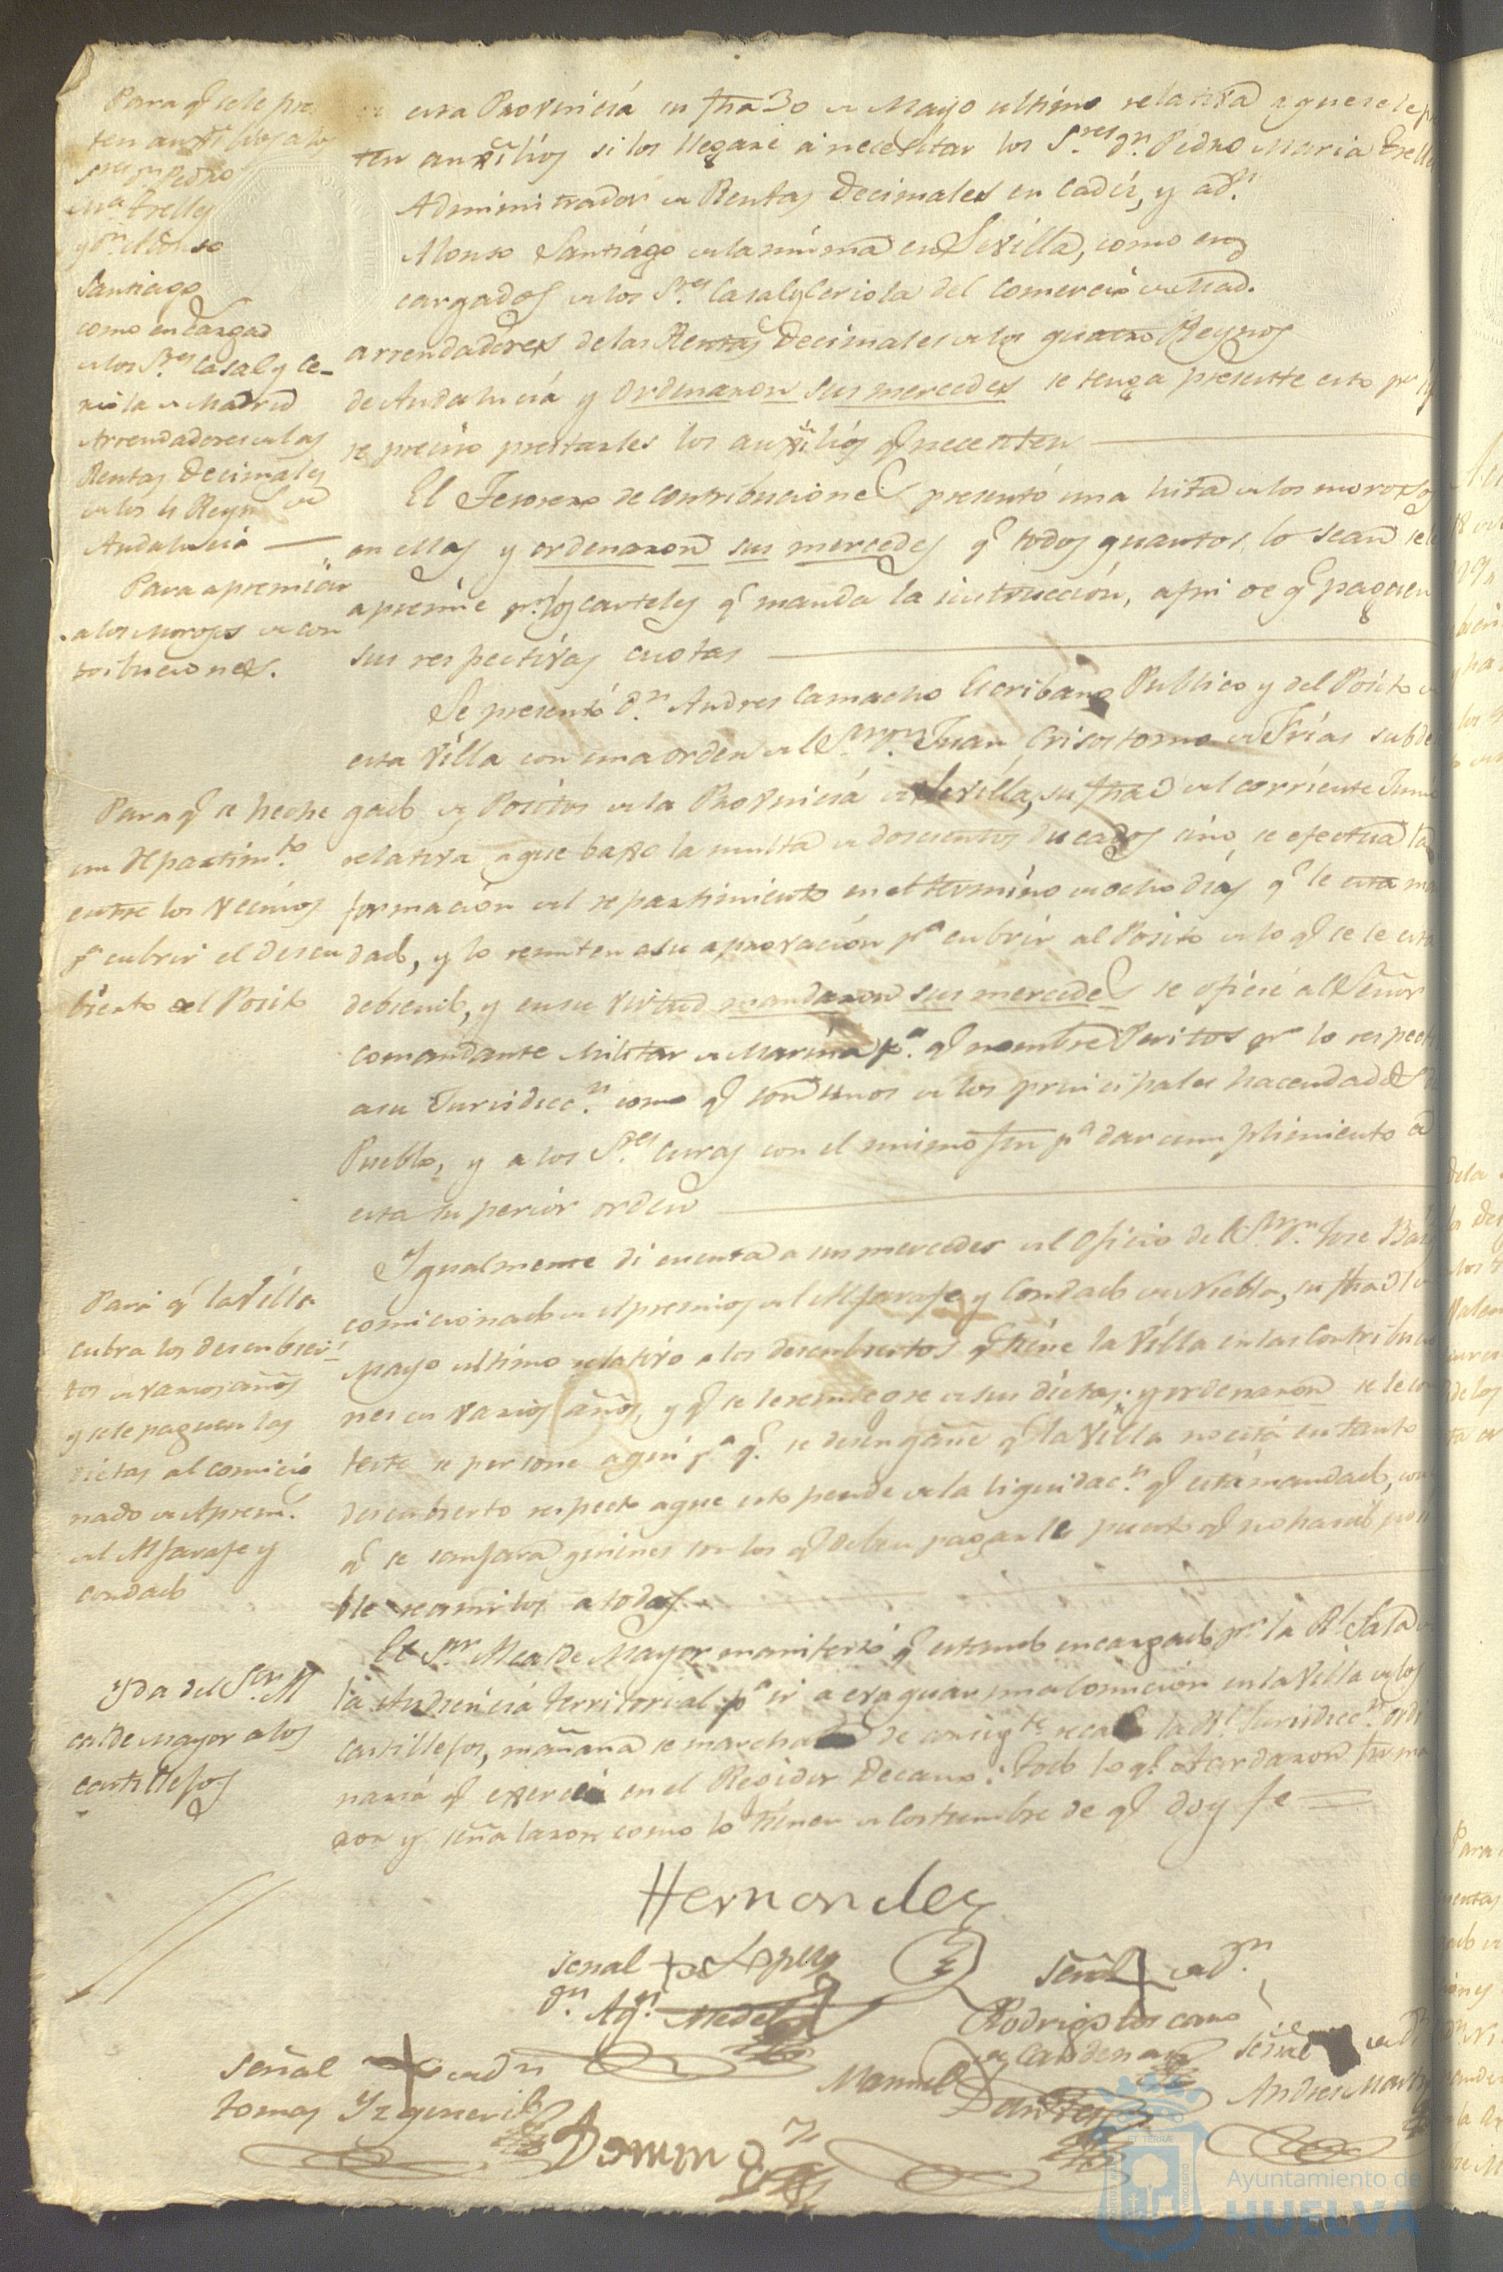 Para q.e se le pres
ten auxilios a los
S.res D.n Pedro
M.a Trelly
y D.n Alonso
Santiago
como encargad
de los S.res Casal y Ce-
riola de Madrid
Arrendadores de las
Rentas Decimales
de los 4 Reyn.s de
Andalucia
Para apremiar
a los Morosos de con
tribuciones.
Para q.e se heche
un repartim.to
entre los vecinos
p.a cubrir el descu
bierto del Posito
Para q.e la Villa
cubra los descubier
tos de varios años
y se le paguen las
dietas al comicio
nado de Aprem.s
del Alfarafe y
condado
Yda del S.or Al
calde mayor a los
castillejos
esta Provincia su fha 30 de Mayo ultimo relativa a que se le p
ten auxilios si los llegare a necesitar los S.res D.n Pedro Maria Trelly
Administrador de Rentas Decimales en Cadiz, y a D.n
Alonso Santiago de la misma en Sevilla, como en
cargados de los S.res Casal y Ceriola del comercio de Mad.
arrendadores de las Rentas Decimales de los quatro Reynos
de Andalucia y ordenaron sus mercedes se tenga presente esto p.a
se preciso prestarles los auxilios q.e necesiten
El Tesorero de contribuciones presentó una lista de los morosos
en ellas y ordenaron sus mercedes q.e todos quantos lo sean se les
apremie p.r los carteles q.e manda la instrucción, a fin de q.e paguen
sus respectivas cuotas
Se presentó D.n Andres Camacho Escribano Publico y del Posito de
esta Villa con una orden del S.or D.n Juan Crisostomo de Frias subde
gado de Positos de la Provincia de Sevilla, su fha del corriente Junio
relativa a que baxo la multa de doscientos ducados sino se efectua la
formación del repartimiento en el termino de ocho dias q.e le esta man
dado, y lo remiten a su aprovación p.a cubrir al Posito de lo q.e se le esta
debiendo, y en su virtud mandaron sus mercedes se oficie al Señor
comandante Militar de Marina p.a q.e nombre Peritos p.r lo respect
a su Jurisdicc.n como q.e son unos de los principales hacendados d
Pueblo, y a los S.res curas con el mismo fin p.a dar cumplimiento a
esta superior orden
Igualmente di cuenta a sus mercedes del oficio del S.or D.n Jose
comicionado de Apremios del Alfarafe y Condado de Niebla, su fha
Mayo ultimo relativo a los descubiertos q.e tiene la Villa en las contribucio
nes en varios años, y q.e se le reintegre de sus dietas; y ordenaron se le con
teste se persone aqui p.a q.e se desengañe q.e la Villa no está en tanto
descubierto respecto a que esto pende de la liquidac.n q.e está mandado, con
q.e se sanjará quienes son los q.e deben pagarle puesto q.e no ha sido posi
ble reunirlos a todos
El S.or Alcalde Mayor manifestó q.e estando encargado p.r la R.l Sala de
la Audiencia territorial p.a ir a evaguar una comición en la Villa de los
castillejos, mañana se marcha de consig.te recae la R.l Jurisdicc.n ordi
naria q.e exercia en el Regidor Decano: todo lo q.e Acordaron firma
ron y señalaron como lo tienen de costumbre de q.e doy fe
Hernandez
señal + de Lopez
D.n Ag.n Medel
señal + de D.n
Rodrigo
de Cardenas
señal + de D.n
tomas Yzquierdo
Manuel
señal de D.
Andres Mart
Doming
Ayuntamiento de
HUELVA